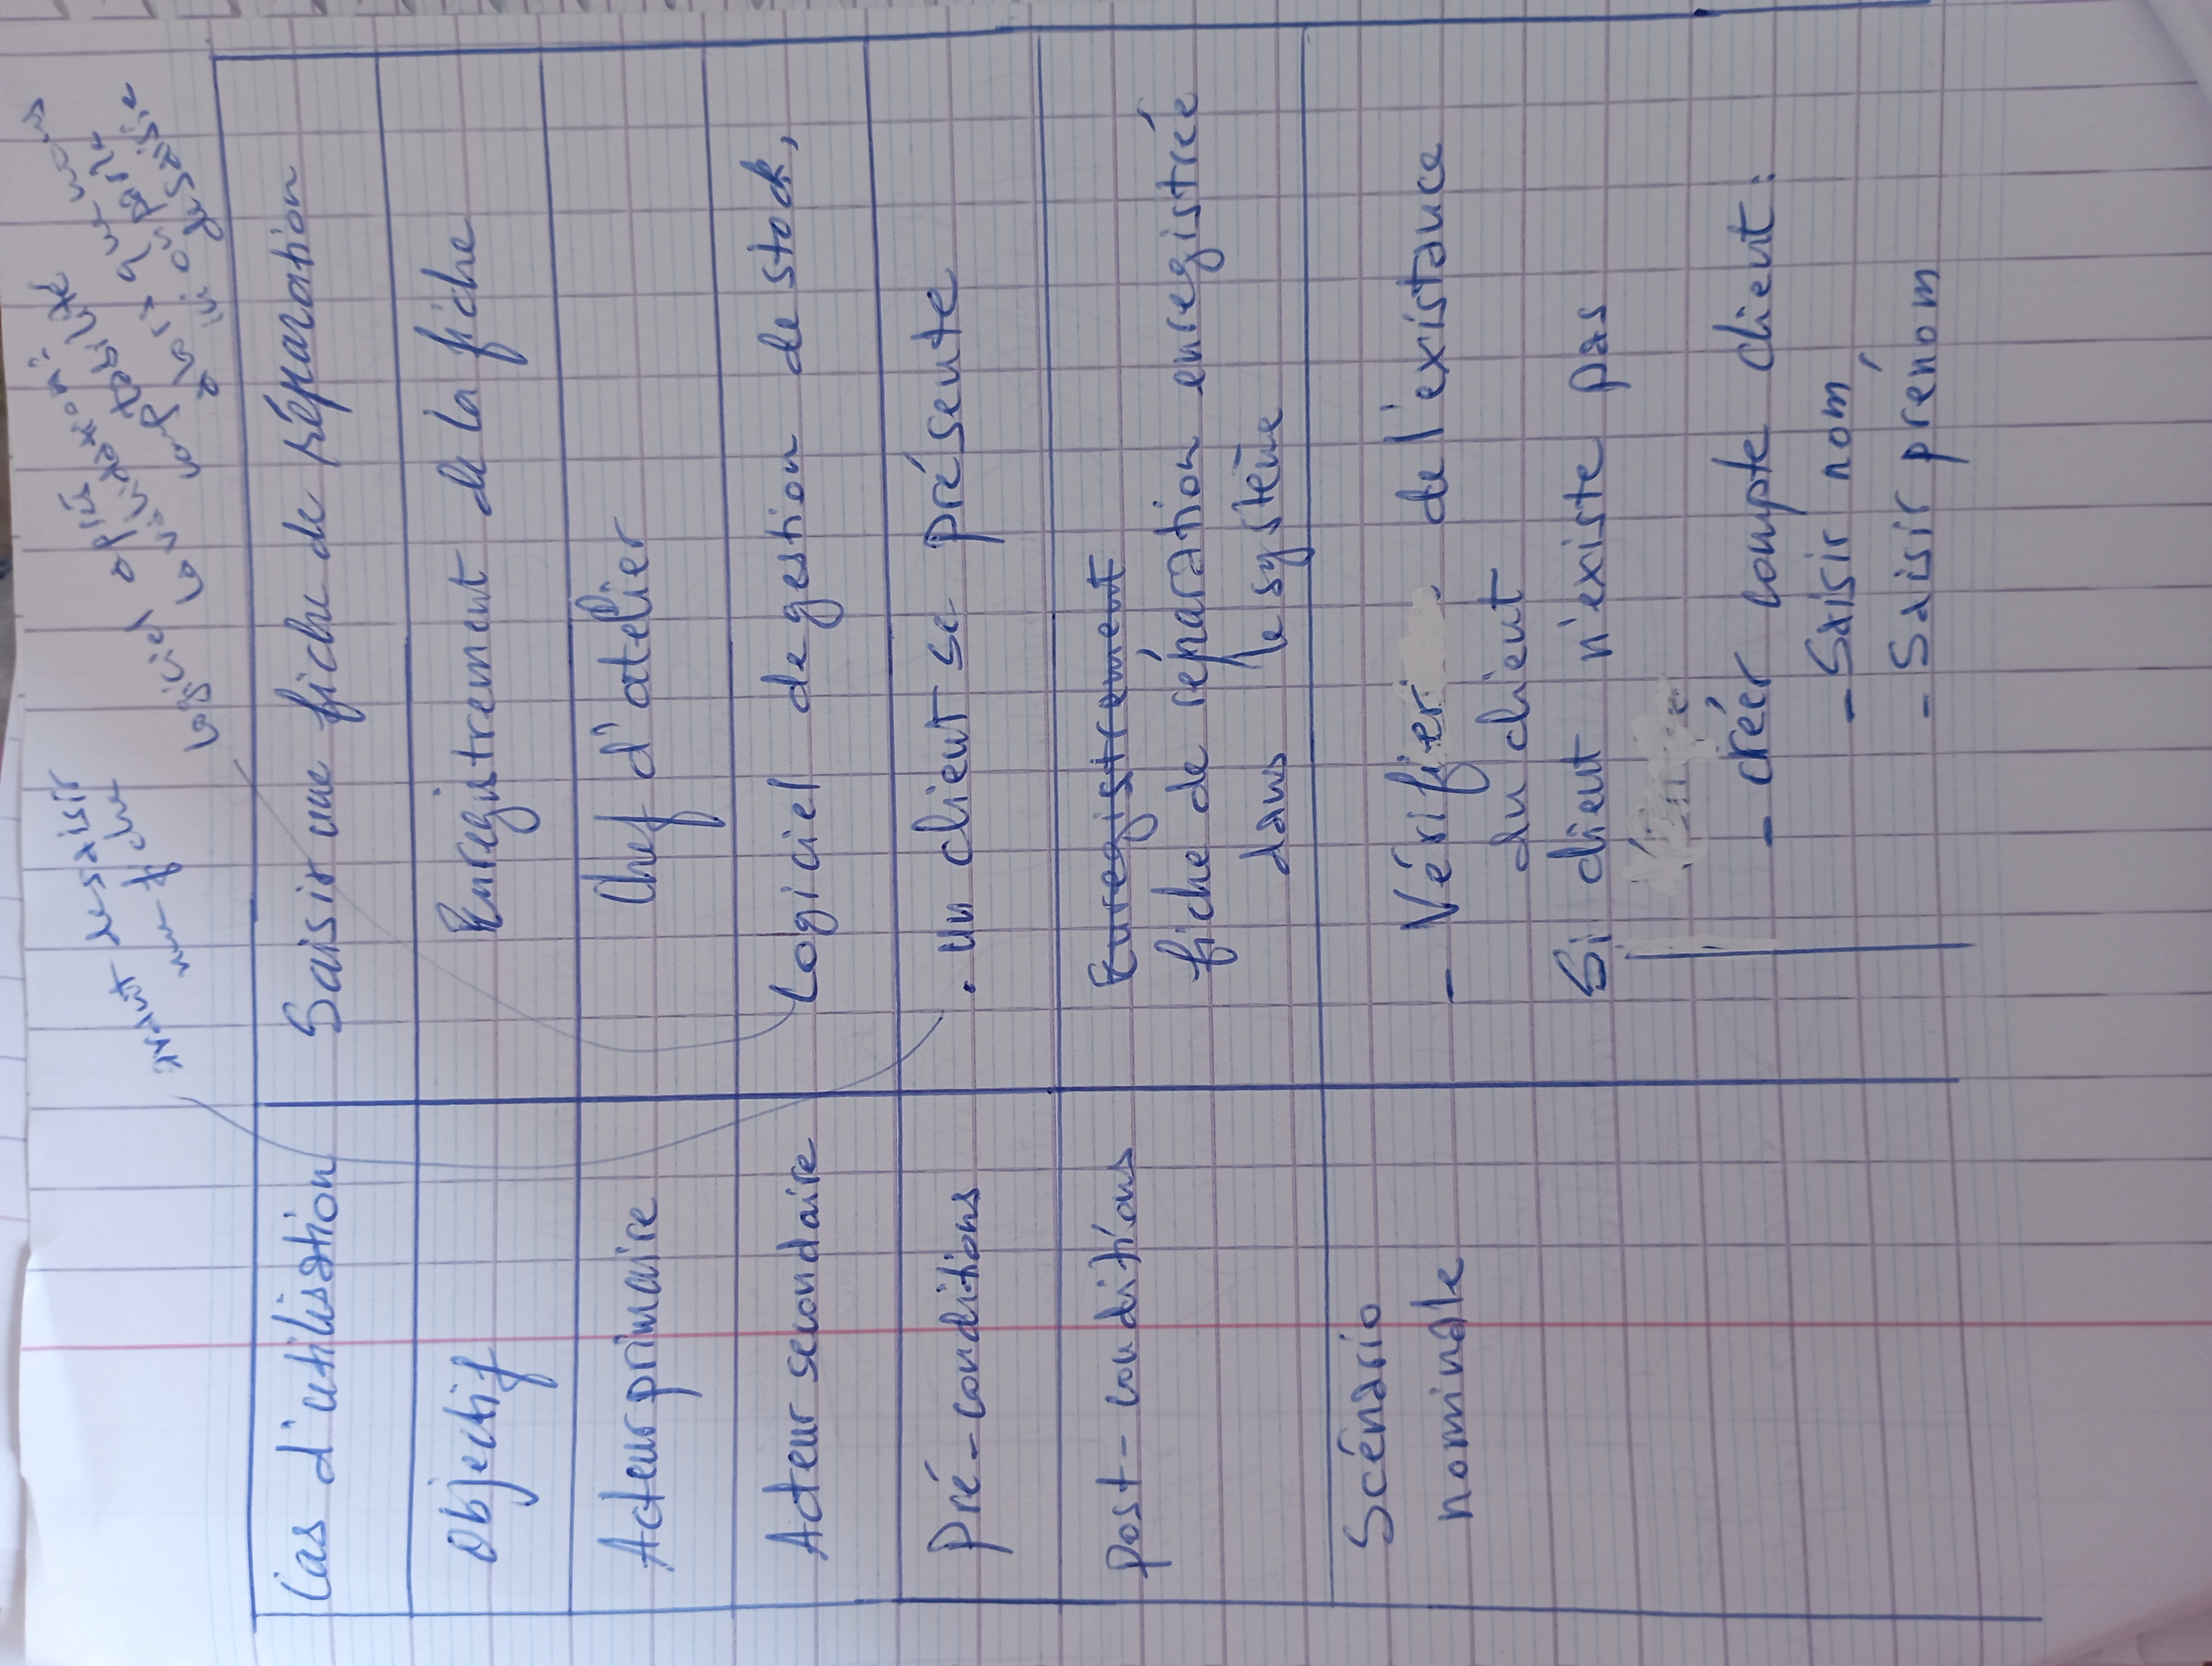 avant de saisir
une fiche
logiciel après
la validation :
comptabilité
alors que nous
ici on parle
de saisie
Cas d'utilisation
Saisir une fiche de réparation
Objectif
Enregistrement de la fiche
Acteur primaire
Chef d'atelier
Acteur secondaire
Logiciel de gestion de stock,
Pré-conditions
. un client se présente
post-conditions
Enregistrement
fiche de réparation enregistrée
dans le système
Scénario
nominale
- Vérifier de l'existance
du client
Si client n'existe pas
- créer compte client :
- Saisir nom
- Saisir prénom